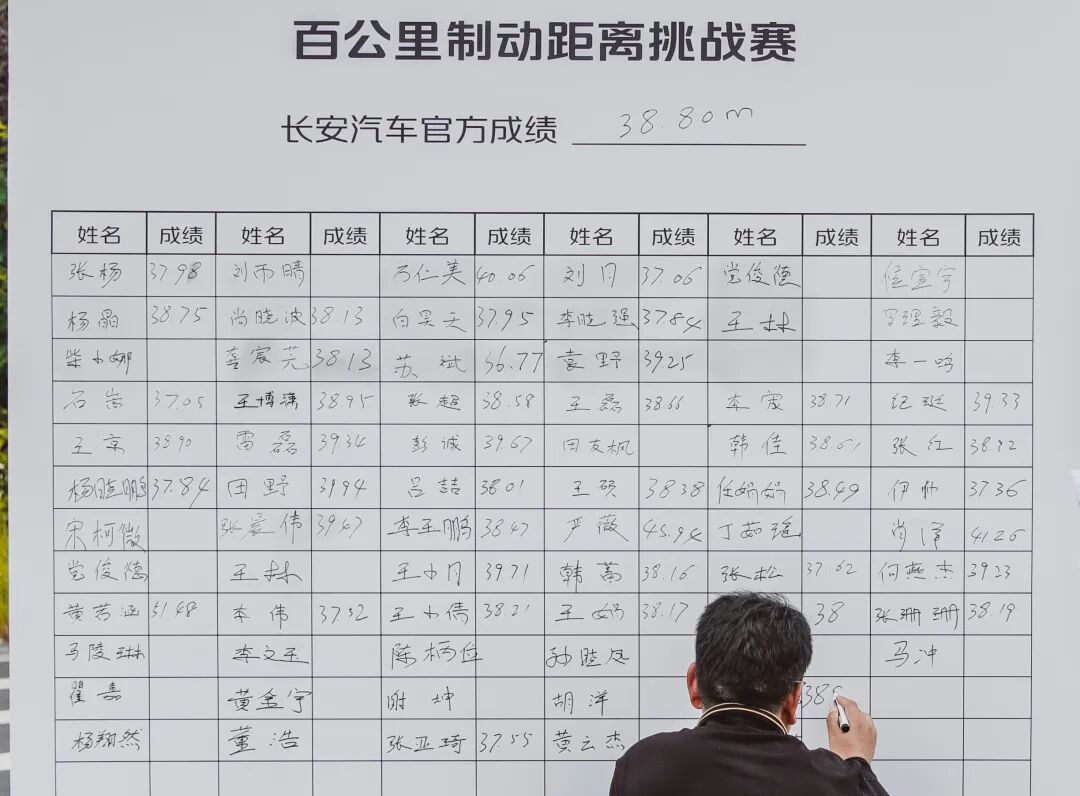 百公里制动距离挑战赛
长安汽车官方成绩 38.80m
姓名 成绩 姓名 成绩 姓名 成绩 姓名 成绩 姓名 成绩 姓名 成绩
张杨 37.98 刘雨晴 万仁美 40.06 刘月 37.06 党俊德 侯宣宇
杨晶 38.75 尚晓波 38.13 白昊天 37.95 李晓强 37.84 王林
柴小娜 38.13 苏斌 36.77 袁野 39.25 李一鸣
石岩 37.05 王博潇 38.95 张超 38.58 王磊 38.66 38.71 39.33
王京 38.90 雷磊 39.34 彭诚 39.67 田友枫 韩佳 38.61 张红
杨晓鹏 37.84 田野 39.94 吕喆 38.01 王硕 38.38 任娟娟 38.49 伊帅 37.36
宋柯微 张晨伟 39.47 李玉鹏 38.47 严薇 45.94 丁茹瑶 肖泽 41.26
党俊德 王林 王小月 39.71 韩蓄 38.16 张松 37.62 何燕杰 39.23
黄若涵 51.48 李伟 37.52 王小倩 38.21 王娟 38.17 38 张珊珊 38.19
马陵琳 李文玉 陈柄位 孙晓冬 马冲
瞿嘉 黄金宇 谢坤 胡洋 38
杨翔然 董浩 张亚琦 37.55 黄云杰